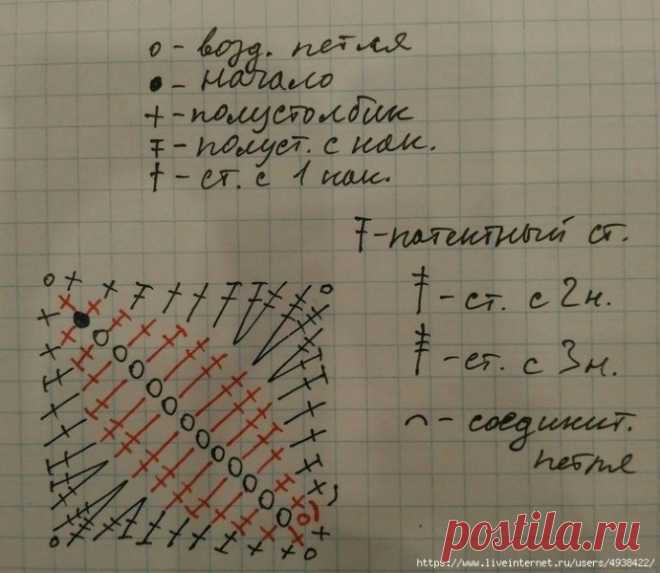 o - возд. петля
● - начало
+ - полустолбик
- полуст. с нак.
† - ст. с 1 нак.
- патентный ст.
- ст. с 2 н.
- ст. с 3 н.
⌒ - соединит.
петля
postila.ru
https://www.liveinternet.ru/users/4938422/